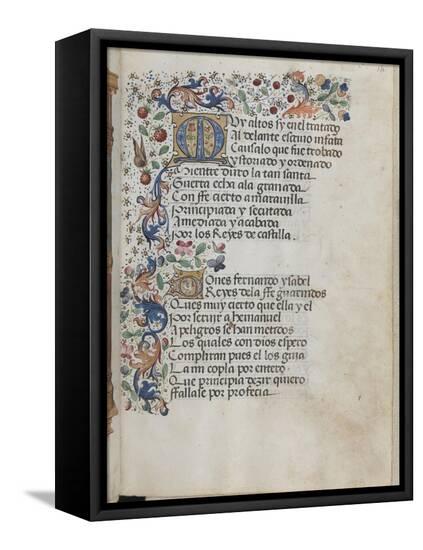 Muy altos sy en el tratado
Al delante escriuo infanta
Causalo que fue trobado
ystoriado y ordenado
mientre duro la tan santa
Guerra echa a la granada
Con ffe cierto a marauilla
principiada y secutada
Amediada y acabada
por los Reyes de castilla
Dones fernando ysabel
Reyes dela ffe guarnidos
Ques muy cierto que ella y el
por seruir a hemanuel
A peligros se han metidos
Los quales con dios espero
Compliran pues el los guia
La mi copla por entero
Que principia dezir quiero
ffallase por profecia